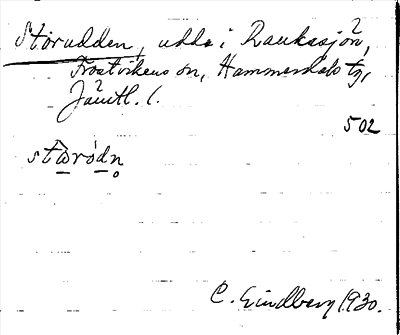 Storudden, udde i Raukasjön,
Frostvikens sn, Hammerdals tg,
Jämtl. l.
502
stωródn̥
C. Lindberg 1930.